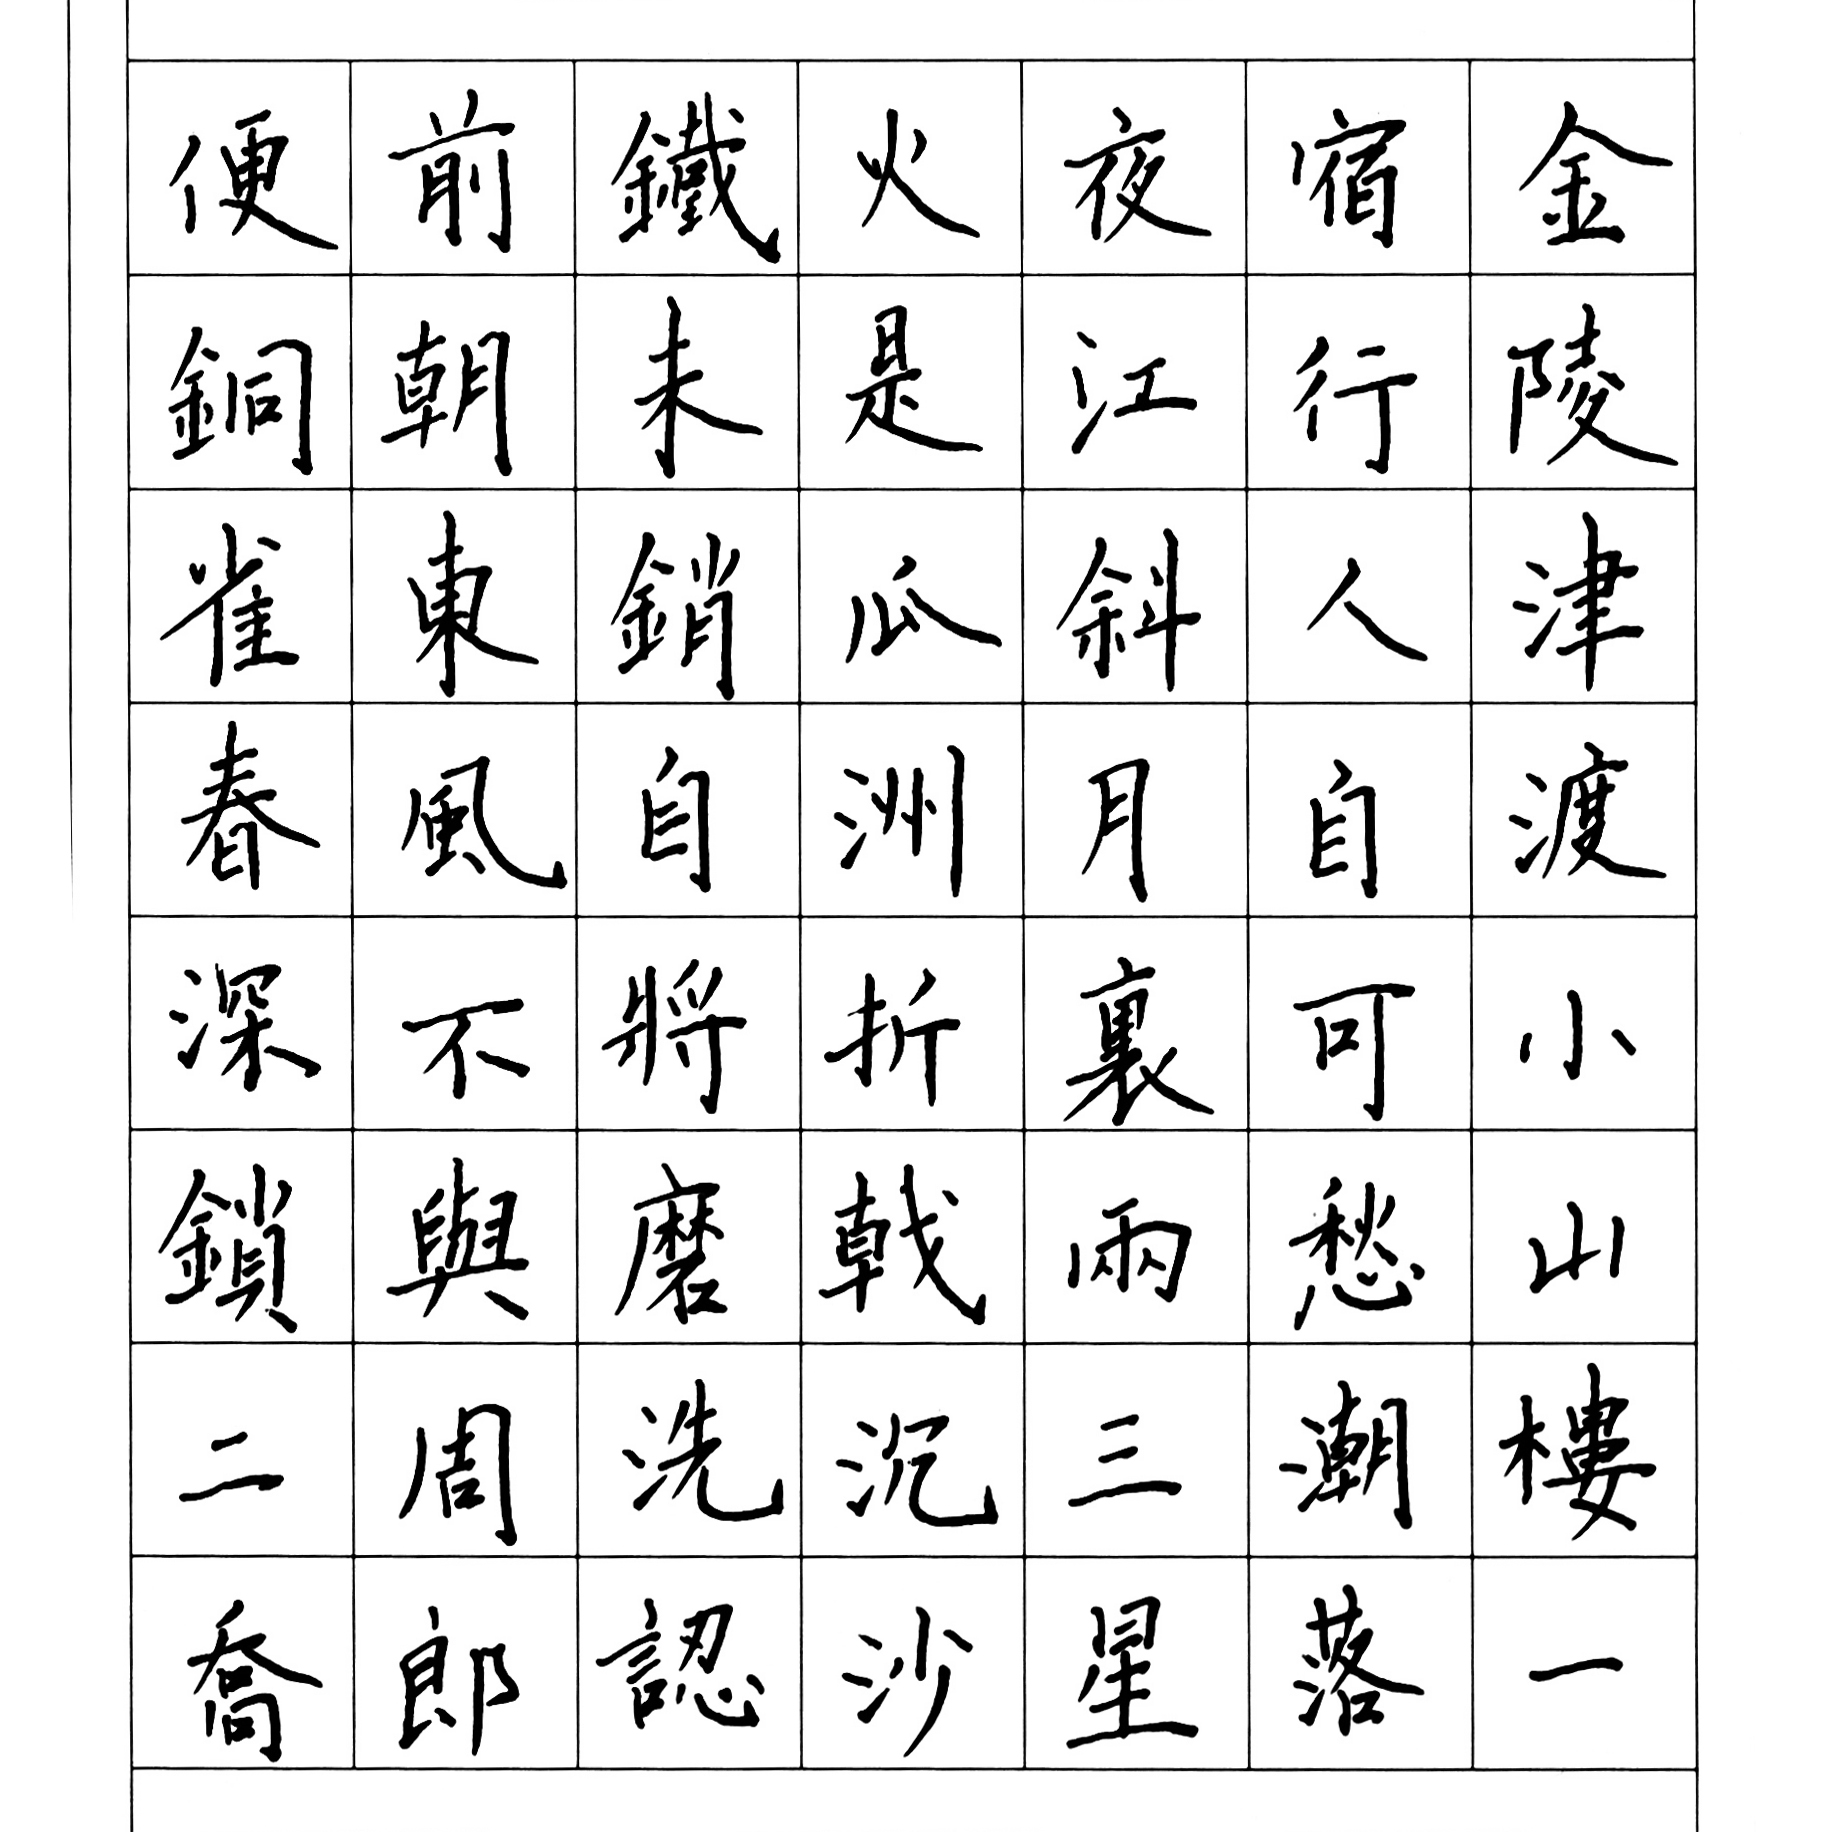 金陵津渡小山樓一
宿行人自可愁潮落
夜江斜月裏兩三星
火是瓜洲折戟沉沙
鐵未銷自將磨洗認
前朝東風不與周郎
便銅雀春深鎖二喬